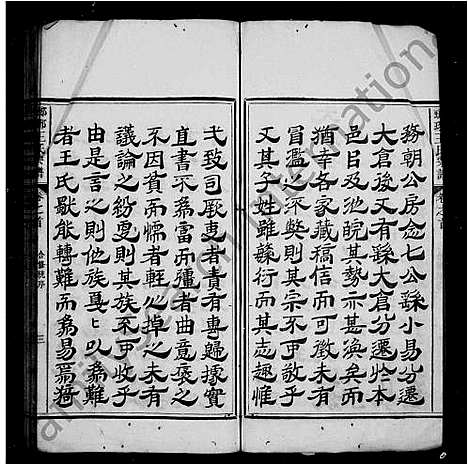 務朝公房念七公繇小易分遷
大倉後又有繇大倉分遷於本
邑及池皖其勢亦甚渙矣而
猶幸各家藏稿信而可徵未有
冒濫之弊則其宗不可敬乎
又其子姓雖蘇衍而其志趣惟
弌致司厥吏者責有專歸據實
直書不為富而彊者曲意褒之
不因貧而懦者輕心掉之未有
議論之紛更則其族不可收乎
由是言之則他族戛戛以為難
者王氏獣能轉難而為易焉猗
三